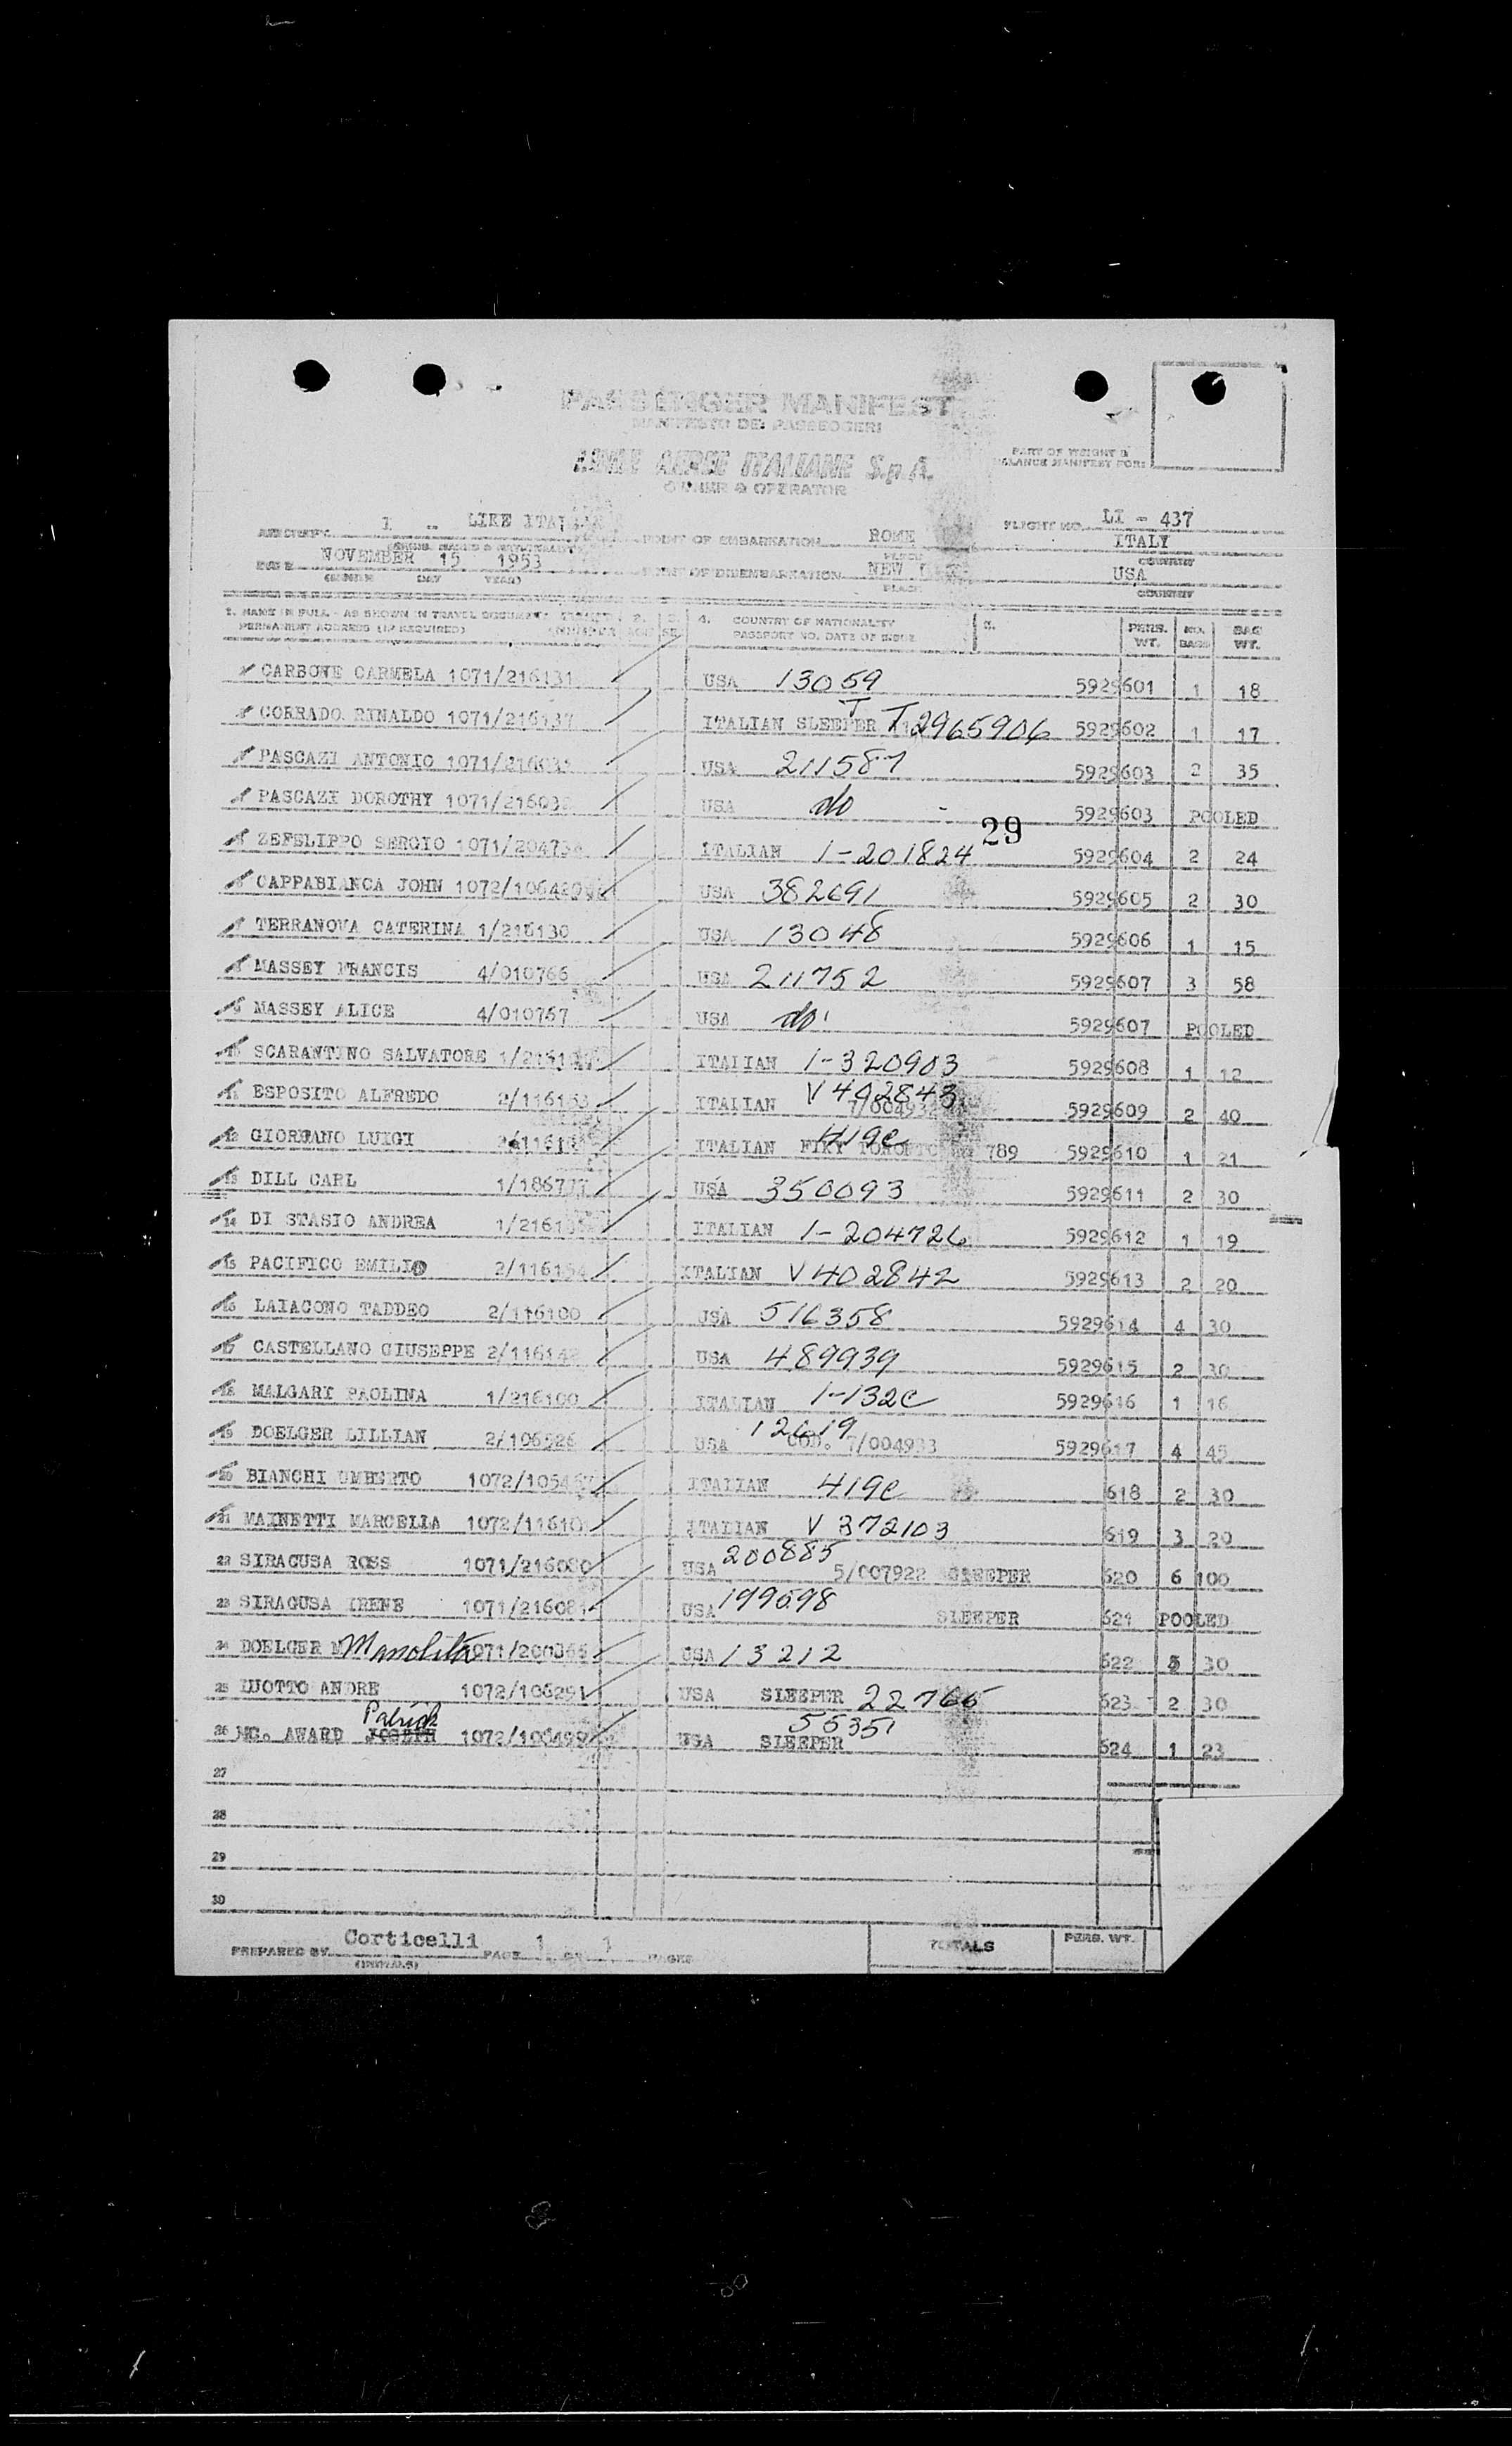 PASSENGER MANIFEST
MANIFESTO DEI PASSEGGERI
LINEE AEREE ITALIANE S.p.A.
OWNER & OPERATOR
PART OF WEIGHT &
BALANCE MANIFEST FOR:
AIRCRAFT 1 - LIKE ITALIAN
POINT OF EMBARKATION ROME ITALY
FLIGHT NO. LI - 437
DATE NOVEMBER 15 1953
(MONTH DAY YEAR)
POINT OF DISEMBARKATION NEW USA
PLACE COUNTRY
1. NAME IN FULL - AS SHOWN IN TRAVEL DOCUMENT 2. 3. 4. COUNTRY OF NATIONALITY 5. PERS. NO. BAG
PERMANENT ADDRESS (IF REQUIRED) NUMBER AGE SEX PASSPORT NO. DATE OF ISSUE WT. BAGS WT.
CARBONE CARMELA 1071/216131 USA 13059 5929601 1 18
CORRADO RINALDO 1071/216137 ITALIAN SLEEPER T 2965906 5929602 1 17
PASCAZI ANTONIO USA 211587 5929603 2 35
PASCAZI DOROTHY USA do 5929603 POOLED
29
ZEFELIPPO SERGIO ITALIAN 1-201824 5929604 2 24
CAPPABIANCA JOHN USA 382691 5929605 2 30
7 TERRANOVA CATERINA 1/216130 USA 13048 5929606 1 15
8 MASSEY FRANCIS 4/010766 USA 211752 5929607 3 58
9 MASSEY ALICE 4/010767 USA do 5929607 POOLED
10 SCARANTINO SALVATORE ITALIAN 1-320903 5929608 1 12
11 ESPOSITO ALFREDO 2/116153 ITALIAN V402843 7/004932 5929609 2 40
12 GIORDANO LUIGI ITALIAN 419c 789 5929610 1 21
13 DILL CARL 1/186777 USA 350093 5929611 2 30
14 DI STASIO ANDREA ITALIAN 1-204726 5929612 1 19
15 PACIFICO EMILIO 2/116154 ITALIAN V402842 5929613 2 20
16 LAIACONO TADDEO 2/116100 USA 516358 5929614 4 30
17 CASTELLANO GIUSEPPE 2/116142 USA 489939 5929615 2 30
18 MALGARI PAOLINA 1/216100 ITALIAN 1-132C 5929616 1 16
19 DOELGER LILLIAN 2/106526 USA 12619 COD. 7/004933 5929617 4 45
20 BIANCHI UMBERTO ITALIAN 419c 618 2 30
21 MAINETTI MARCELLA ITALIAN V 372103 619 3 20
22 SIRAGUSA ROSS 1071/216080 USA 200885 5/007922 SLEEPER 620 6 100
23 SIRAGUSA IRENE 1071/216081 USA 199598 SLEEPER 621 POOLED
24 DOELGER Manolita USA 13212 622 30
25 LUOTTO ANDRE 1072/106291 USA SLEEPER 22766 623 2 30
Patrick
26 MC. AWARD JOSEPH 1072/106499 USA SLEEPER 55351 624 1 23
27
28
29
30
PREPARED BY Corticelli PAGE 1 OF 1 PAGES
(INITIALS)
TOTALS PERS. WT.